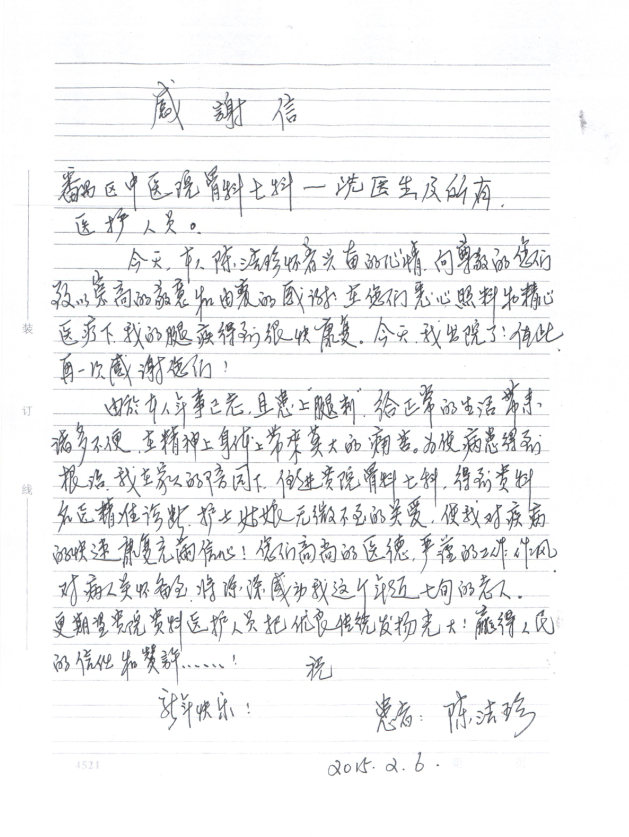 感謝信
番禺区中医院骨科七科一沈医生及所有
医护人员。
今天,本人陈洁珍怀着兴奋的心情,向尊敬的您们
致以崇高的敬意和由衷的感谢!在您们悉心照料和精心
医疗下,我的腿疾得到很快康复。今天我出院了!值此
再一次感谢您们!
由於本人年事已老,且患上"腿刺",给正常的生活带来
诸多不便,在精神上身体上带来莫大的痛苦。为使病患得到
根治,我在家人的陪同下,住进贵院骨科七科,得到贵科
名医精准诊断,护士姑娘无微不至的关爱,使我对疾病
的快速康复充满信心!您们高尚的医德,严谨的工作作风,
对病人关怀备至,将深深感动我这个年近七旬的老人。
更期望贵院贵科医护人员把优良传统发扬光大!赢得人民
的信任和赞許……! 祝
新年快乐! 患者:陈洁珍
2015.2.6.
装
订
线